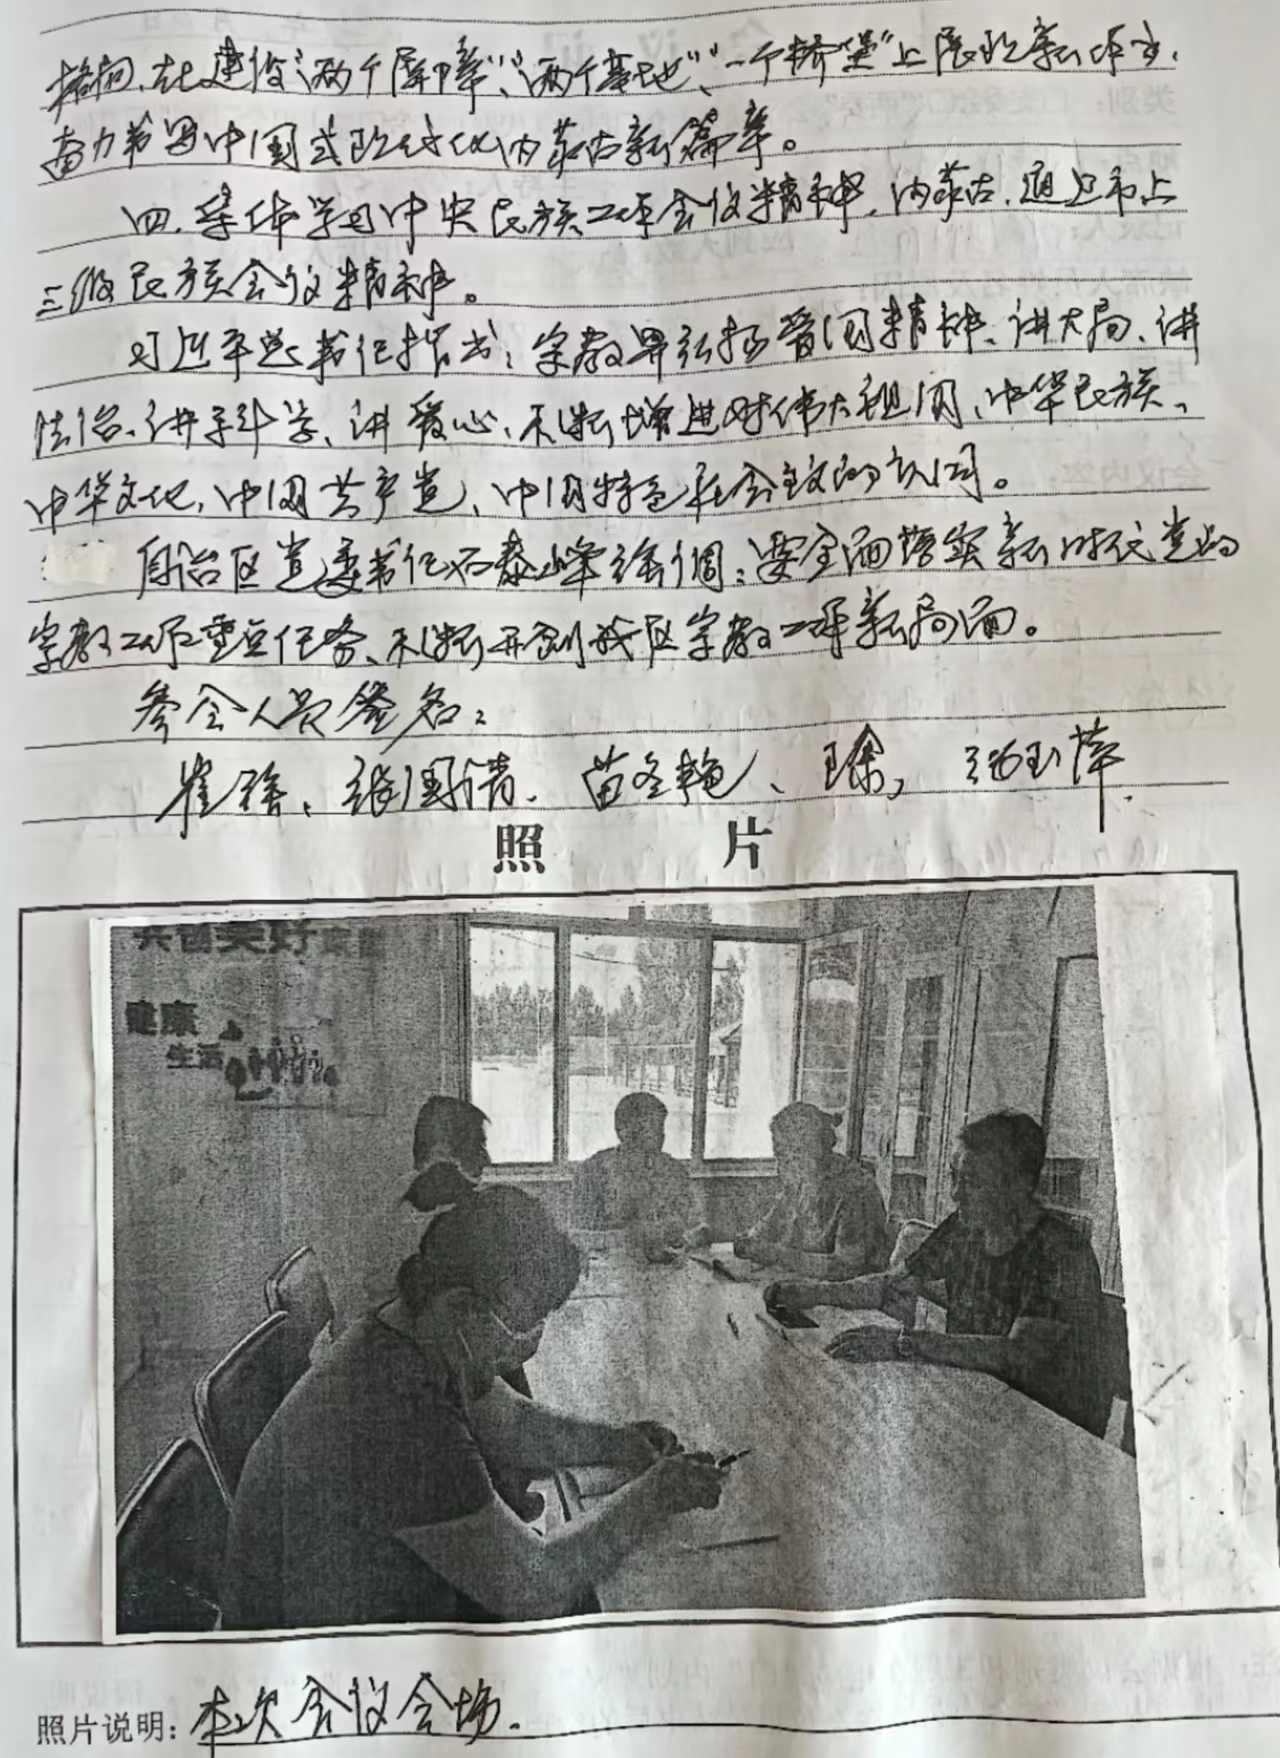 格局,在建设"两个屏障"、"两个基地"、"一个桥堡"上展现新作为,
奋力书写中国式现代化内蒙古新篇章。
四、集体学习中央民族工作会议精神,内蒙古、通辽市上
三级民族会议精神。
习近平总书记指出:宗教界弘扬爱国精神、讲大局、讲
法治、讲科学、讲爱心,不断增进对伟大祖国、中华民族、
中华文化,中国共产党、中国特色社会主义的认同。
自治区党委书记石泰峰强调:要全面落实新时代党的
宗教工作重点任务、不断开创我区宗教工作新局面。
参会人员签名:
崔、张国清、苗冬艳、
照 片
共创美好
健康
生活
照片说明:本次会议会场.